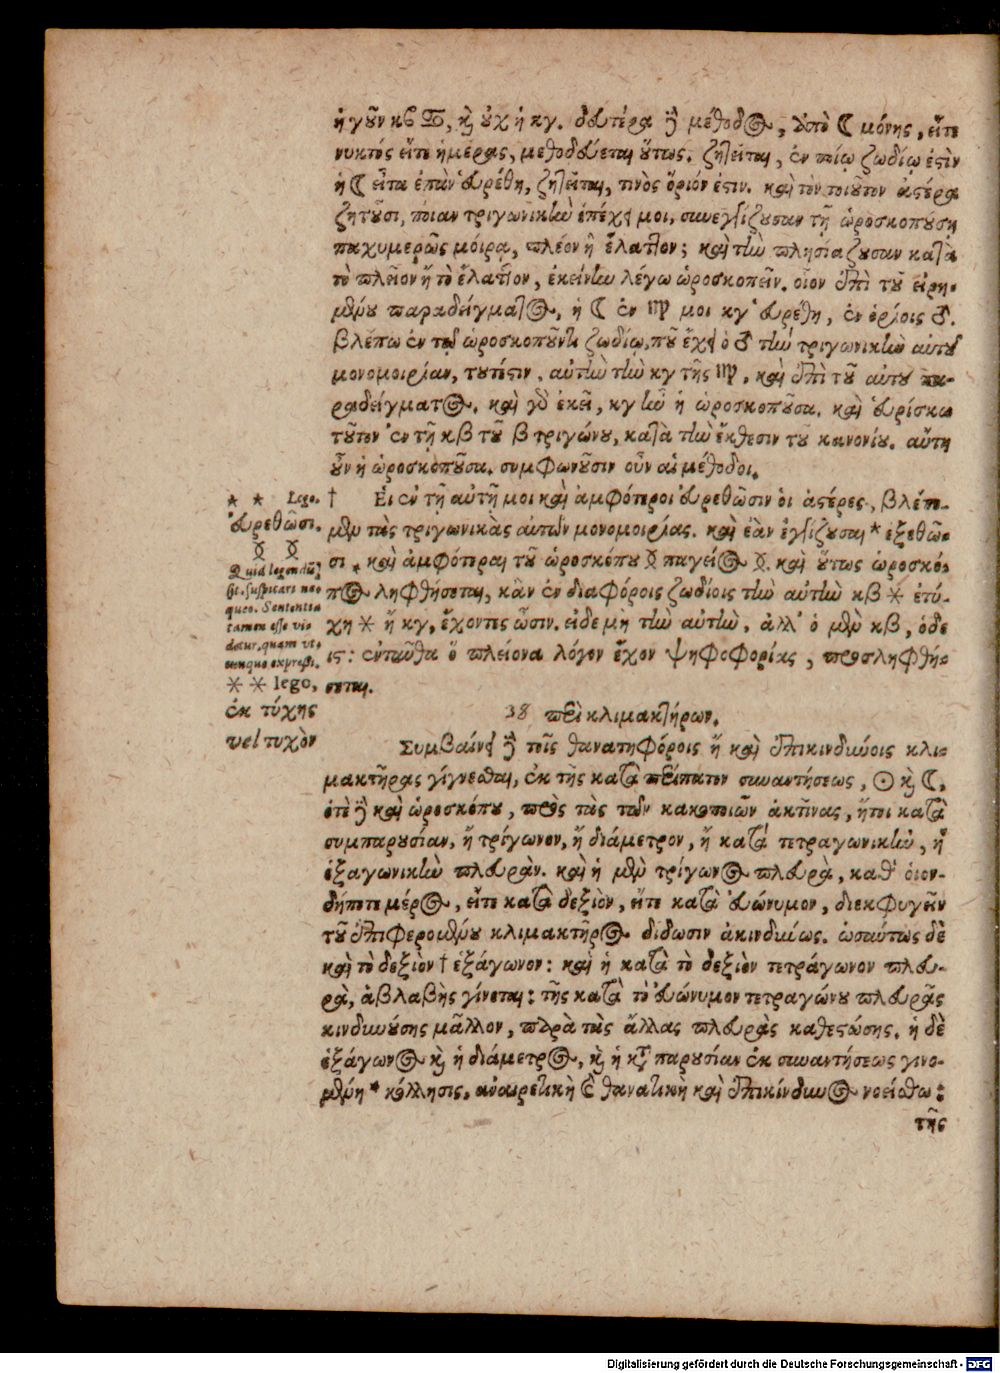 ἡ γοῦν κβ ♉, καὶ οὐχ ἡ κγ. δευτέρα δὲ μέθοδος, ὑπὸ ☾ μόνης, εἴτε
νυκτός εἴτε ἡμέρας, μεθοδεύεται οὕτως. ζητεῖται, ἐν ποίῳ ζωδίῳ ἐστὶν
ἡ ☾ εἶτα ἐπὰν εὑρέθη, ζητεῖται, τινὸς ὅριόν ἐστιν. καὶ τὸν τοιοῦτον ἀστέρα
ζητοῦσι, ποίαν τριγωνικὴν ἐπέχει μοι, συνεγγίζουσαν τῇ ὡροσκοπούσῃ
παχυμερῶς μόιρᾳ, πλέον ἢ ἔλαττον; καὶ τὴν πλησιάζουσαν κατὰ
τὸ πλεῖον ἢ τὸ ἔλαττον, ἐκείνην λέγω ὡροσκοπεῖν. οἷον ἐπὶ τοῦ εἰρη-
μένου παραδείγματος, ἡ ☾ ἐν ♍ μοι κγ εὑρέθη, ἐν ὁρίοις ♂.
βλέπω ἐν τῷ ὡροσκοποῦντι ζωδίῳ, ποῦ ἔχει ὁ ♂ τὴν τριγωνικὴν αὐτοῦ
μονομοιρίαν, τουτέστιν, αὐτὴν τὴν κγ τῆς ♍, καὶ ἐπὶ τοῦ αὐτοῦ πα-
ραδείγματος. καὶ γὰρ ἐκεῖ, κγ ἦν ἡ ὡροσκοποῦσα. καὶ εὑρίσκω
τοῦτον ἐν τῇ κβ τοῦ β τριγώνου, κατὰ τὴν ἔκθεσιν τοῦ κανονίου. αὕτη
οὖν ἡ ὡροσκοποῦσα. συμφωνοῦσιν οὖν αἱ μέθοδοι.
* * Lego.
εὑρεθῶσι.
☿ ☿
Quid legendũ
sit, suspicari ne-
queo. Sententia
tamen esse vi-
detur, quam vt-
cunque expressi.
✳ ✳ lego,
ἐκ τύχης
vel τυχὸν
† Εἰ ἐν τῇ αὐτῇ μοι καὶ ἀμφότεροι εὑρεθῶσιν ὁι ἀστέρες, βλέπο-
μεν τὰς τριγωνικὰς αὐτῶν μονομοιρίας. καὶ ἐὰν ἐγγίζουσαι * ἐξεθῶ-
σι * καὶ ἀμφότεραι τοῦ ὡροσκόπου ☿ παγείος ☿. καὶ οὕτως ὡροσκό-
πος ληφθήσεται, κἂν ἐν διαφόροις ζωδίοις τὴν αὐτὴν κβ ✳ ἐτύ-
χη ✳ ἢ κγ, ἔχοντες ὦσιν. εἰ δὲ μὴ τὴν αὐτὴν, ἀλλ' ὁ μὲν κβ, ὁ δὲ
ις: ἐνταῦθα ὁ πλείονα λόγον ἔχον ψηφοφορίας, προσληφθή-
σεται.
38 περὶ κλιμακτήρων.
Συμβαίνει δὲ τοῖς θανατηφόροις ἢ καὶ ἐπικινδύνοις κλι-
μακτῆρας γίγνεσθαι, ἐκ τῆς κατὰ περίπατον συναντήσεως, ☉ καὶ ☾,
ἔτι δὲ καὶ ὡροσκόπου, πρὸς τὰς τῶν κακοποιῶν ἀκτῖνας, ἤτοι κατὰ
συμπαρουσίαν, ἢ τρίγωνον, ἢ διάμετρον, ἢ κατὰ τετραγωνικὴν, ἢ
ἑξαγωνικὴν πλευρὰν. καὶ ἡ μὲν τρίγωνος πλευρὰ, καθ' ὁιον-
δήποτε μέρος, εἴτε κατὰ δεξιὸν, εἴτε κατὰ εὐώνυμον, διεκφυγεῖν
τοῦ ἐπιφερομένου κλιμακτῆρος δίδωσιν ἀκινδύνως. ὡσαύτως δὲ
καὶ τὸ δεξιὸν † ἑξάγωνον: καὶ ἡ κατὰ τὸ δεξιὸν τετράγωνον πλευ-
ρὰ, ἀβλαβὴς γίνεται: τῆς κατὰ τὸ εὐώνυμον τετραγώνου πλευρᾶς
κινδυνούσης μᾶλλον, παρὰ τὰς ἄλλας πλευρὰς καθεστώσης. ἡ δὲ
ἑξάγωνος καὶ ἡ διάμετρος, καὶ ἡ κατὰ παρουσίαν ἐκ συναντήσεως γινο-
μένη * κόλλησις, ἀναιρετικὴ καὶ θανατικὴ καὶ ἐπικίνδυνος νοείσθω:
τῆς
Digitalisierung gefördert durch die Deutsche Forschungsgemeinschaft - DFG